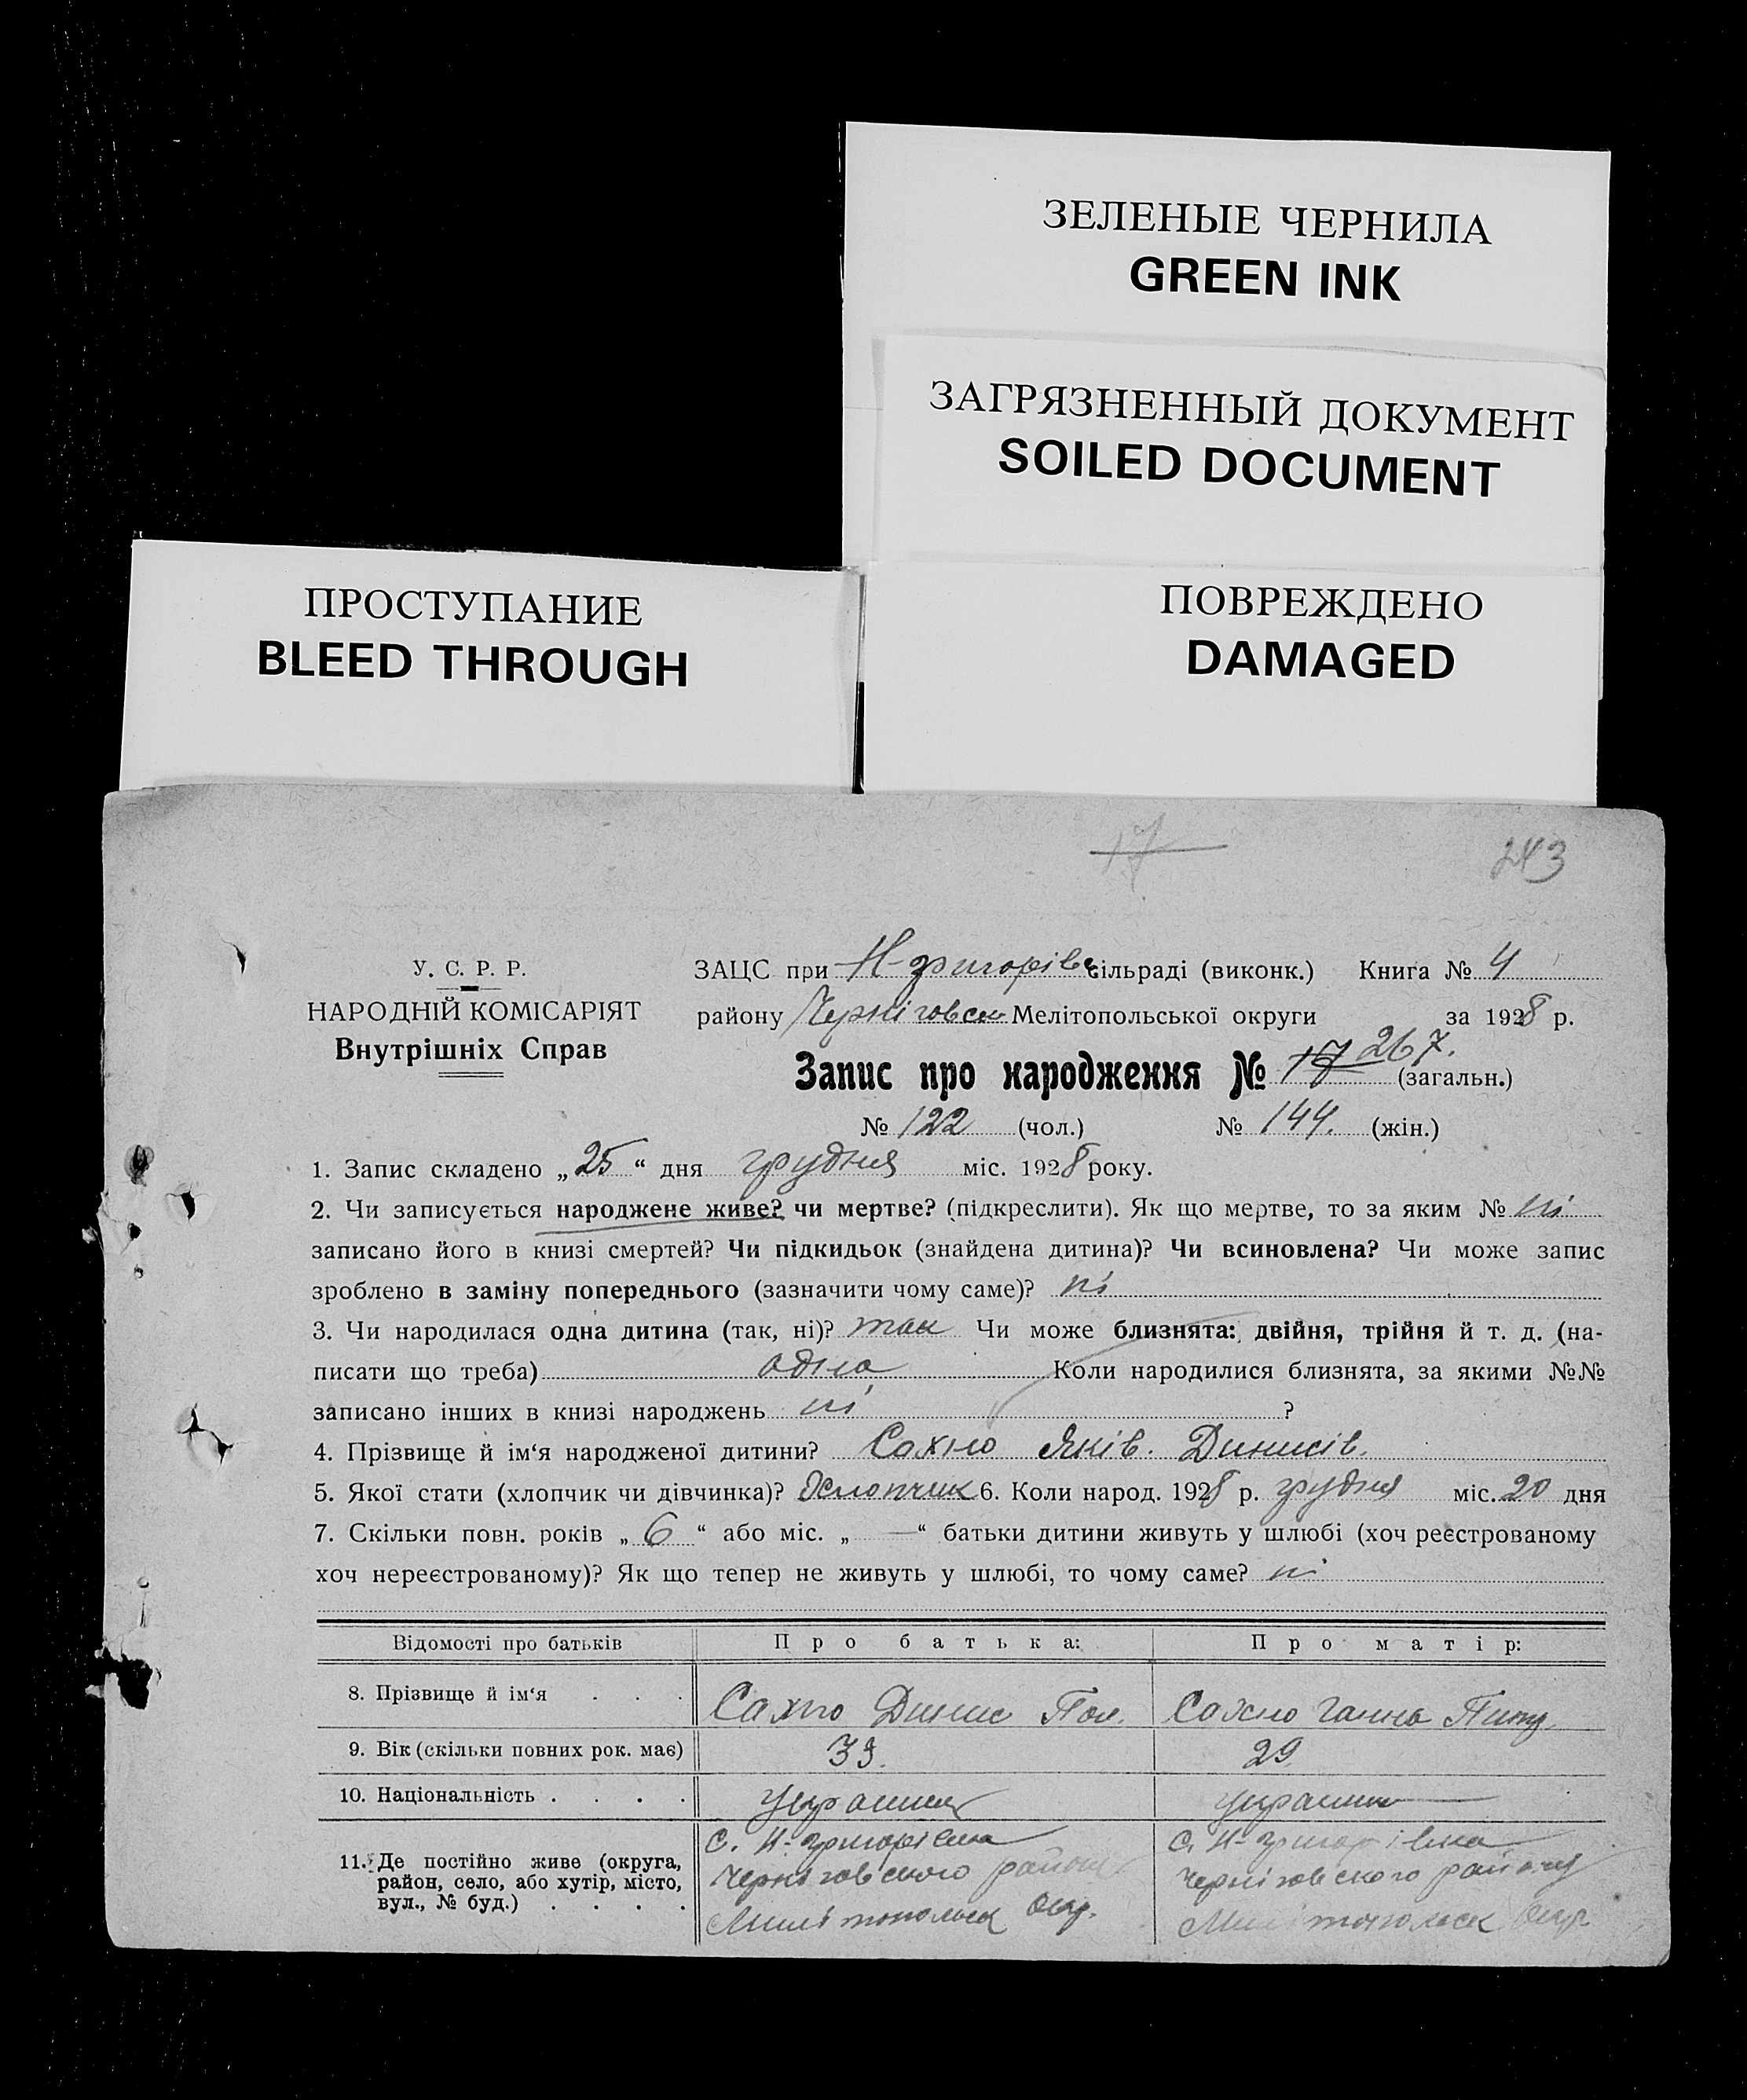 ЗЕЛЕНЫЕ ЧЕРНИЛА
GREEN INK
ЗАГРЯЗНЕННЫЙ ДОКУМЕНТ
SOILED DOCUMENT
ПРОСТУПАНИЕ
BLEED THROUGH
ПОВРЕЖДЕНО
DAMAGED
17
243
У. С. Р. Р.
НАРОДНІЙ КОМІСАРІЯТ
Внутрішніх Справ
ЗАЦС при Н-григорівс сільраді (виконк.) Книга № 4
району Черніговськ Мелітопольської округи за 1928 р.
Запис про народження № 17 267. (загальн.)
№ 122 (чол.) № 144. (жін.)
1. Запис складено „25“ дня грудня міс. 1928 року.
2. Чи записується народжене живе? чи мертве? (підкреслити). Як що мертве, то за яким № ні
записано його в книзі смертей? Чи підкидьок (знайдена дитина)? Чи всиновлена? Чи може запис
зроблено в заміну попереднього (зазначити чому саме)? ні
3. Чи народилася одна дитина (так, ні)? так Чи може близнята: двійня, трійня й т. д. (на-
писати що треба) одна Коли народилися близнята, за якими №№
записано інших в книзі народжень ні ?
4. Прізвище й ім‘я народженої дитини? Сахно Яків. Динисів.
5. Якої стати (хлопчик чи дівчинка)? Хлопчик 6. Коли народ. 1928 р. грудня міс. 20 дня
7. Скільки повн. років „6“ або міс. „—“ батьки дитини живуть у шлюбі (хоч реєстрованому
хоч нереєстрованому)? Як що тепер не живуть у шлюбі, то чому саме? ні
Відомості про батьків Про батька: Про матір:
8. Прізвище й ім‘я . . . Сахно Динис Сахно Ганна
9. Вік (скільки повних рок. має) 39. 29
10. Національність . . . . 
11. Де постійно живе (округа, район, село, або хутір, місто, вул., № буд.) . . . .
с. Н-григорівка Черніговського району Милітопольск Окр.
с. Н-григорівка Черніговського району Милітопольск Окр